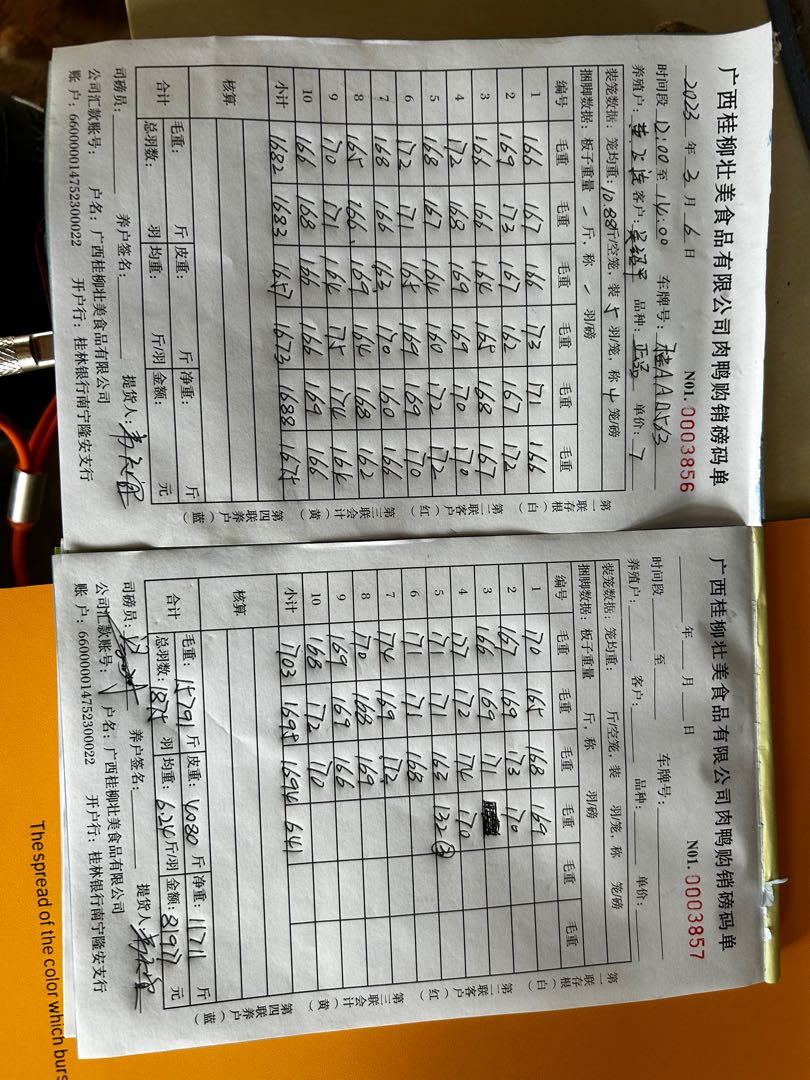 广西桂柳壮美食品有限公司肉鸭购销磅码单
2023 年 3 月 6 日 N01. 0003856
时间段 12:00 至 14:00 车牌号:
养殖户: 客户: 品种: 单价: 7
装笼数据: 笼均重: 10.88 斤/空笼, 装 5 羽/笼, 称 4 笼/磅
捆脚数据: 板子重量 / 斤, 称 / 羽/磅
编号 毛重 毛重 毛重 毛重 毛重 毛重
1 166 167 166 173 171 166
2 169 173 167 162 167 172
3 166 166 164 165 168 167
4 172 168 169 169 170 170
5 168 167 164 160 172 172
6 172 171 165 169 169 170
7 168 166 163 170 160 166
8 165 166 169 164 168 162
9 170 171 164 175 174 164
10 166 168 166 166 169 166
小计 1682 1683 1657 1673 1688 1675
核算
合计 毛重: 斤 皮重: 斤 净重: 斤
总羽数: 羽 均重: 斤/羽 金额: 元
司磅员: 养户签名: 提货人:
公司汇款账号: 户名: 广西桂柳壮美食品有限公司
账户: 660000014752300022 开户行: 桂林银行南宁隆安支行
第一联存根(白) 第二联客户(红) 第三联会计(黄) 第四联养户(蓝)
广西桂柳壮美食品有限公司肉鸭购销磅码单
年 月 日 N01. 0003857
时间段 至 车牌号:
养殖户: 客户: 品种: 单价:
装笼数据: 笼均重: 斤/空笼, 装 羽/笼, 称 笼/磅
捆脚数据: 板子重量 斤, 称 羽/磅
编号 毛重 毛重 毛重 毛重 毛重 毛重
1 170 165 168 169
2 167 169 173 170
3 166 169 171
4 177 172 174 170
5 171 171 163 132 ③
6 171 171 168
7 174 169 172
8 170 168 169
9 169 169 166
10 168 172 170
小计 1703 1695 1694 641
核算
合计 毛重: 15791 斤 皮重: 4080 斤 净重: 11711 斤
总羽数: 1875 羽 均重: 6.24 斤/羽 金额: 81977 元
司磅员: 养户签名: 提货人:
公司汇款账号: 户名: 广西桂柳壮美食品有限公司
账户: 660000014752300022 开户行: 桂林银行南宁隆安支行
第一联存根(白) 第二联客户(红) 第三联会计(黄) 第四联养户(蓝)
The spread of the color which burs